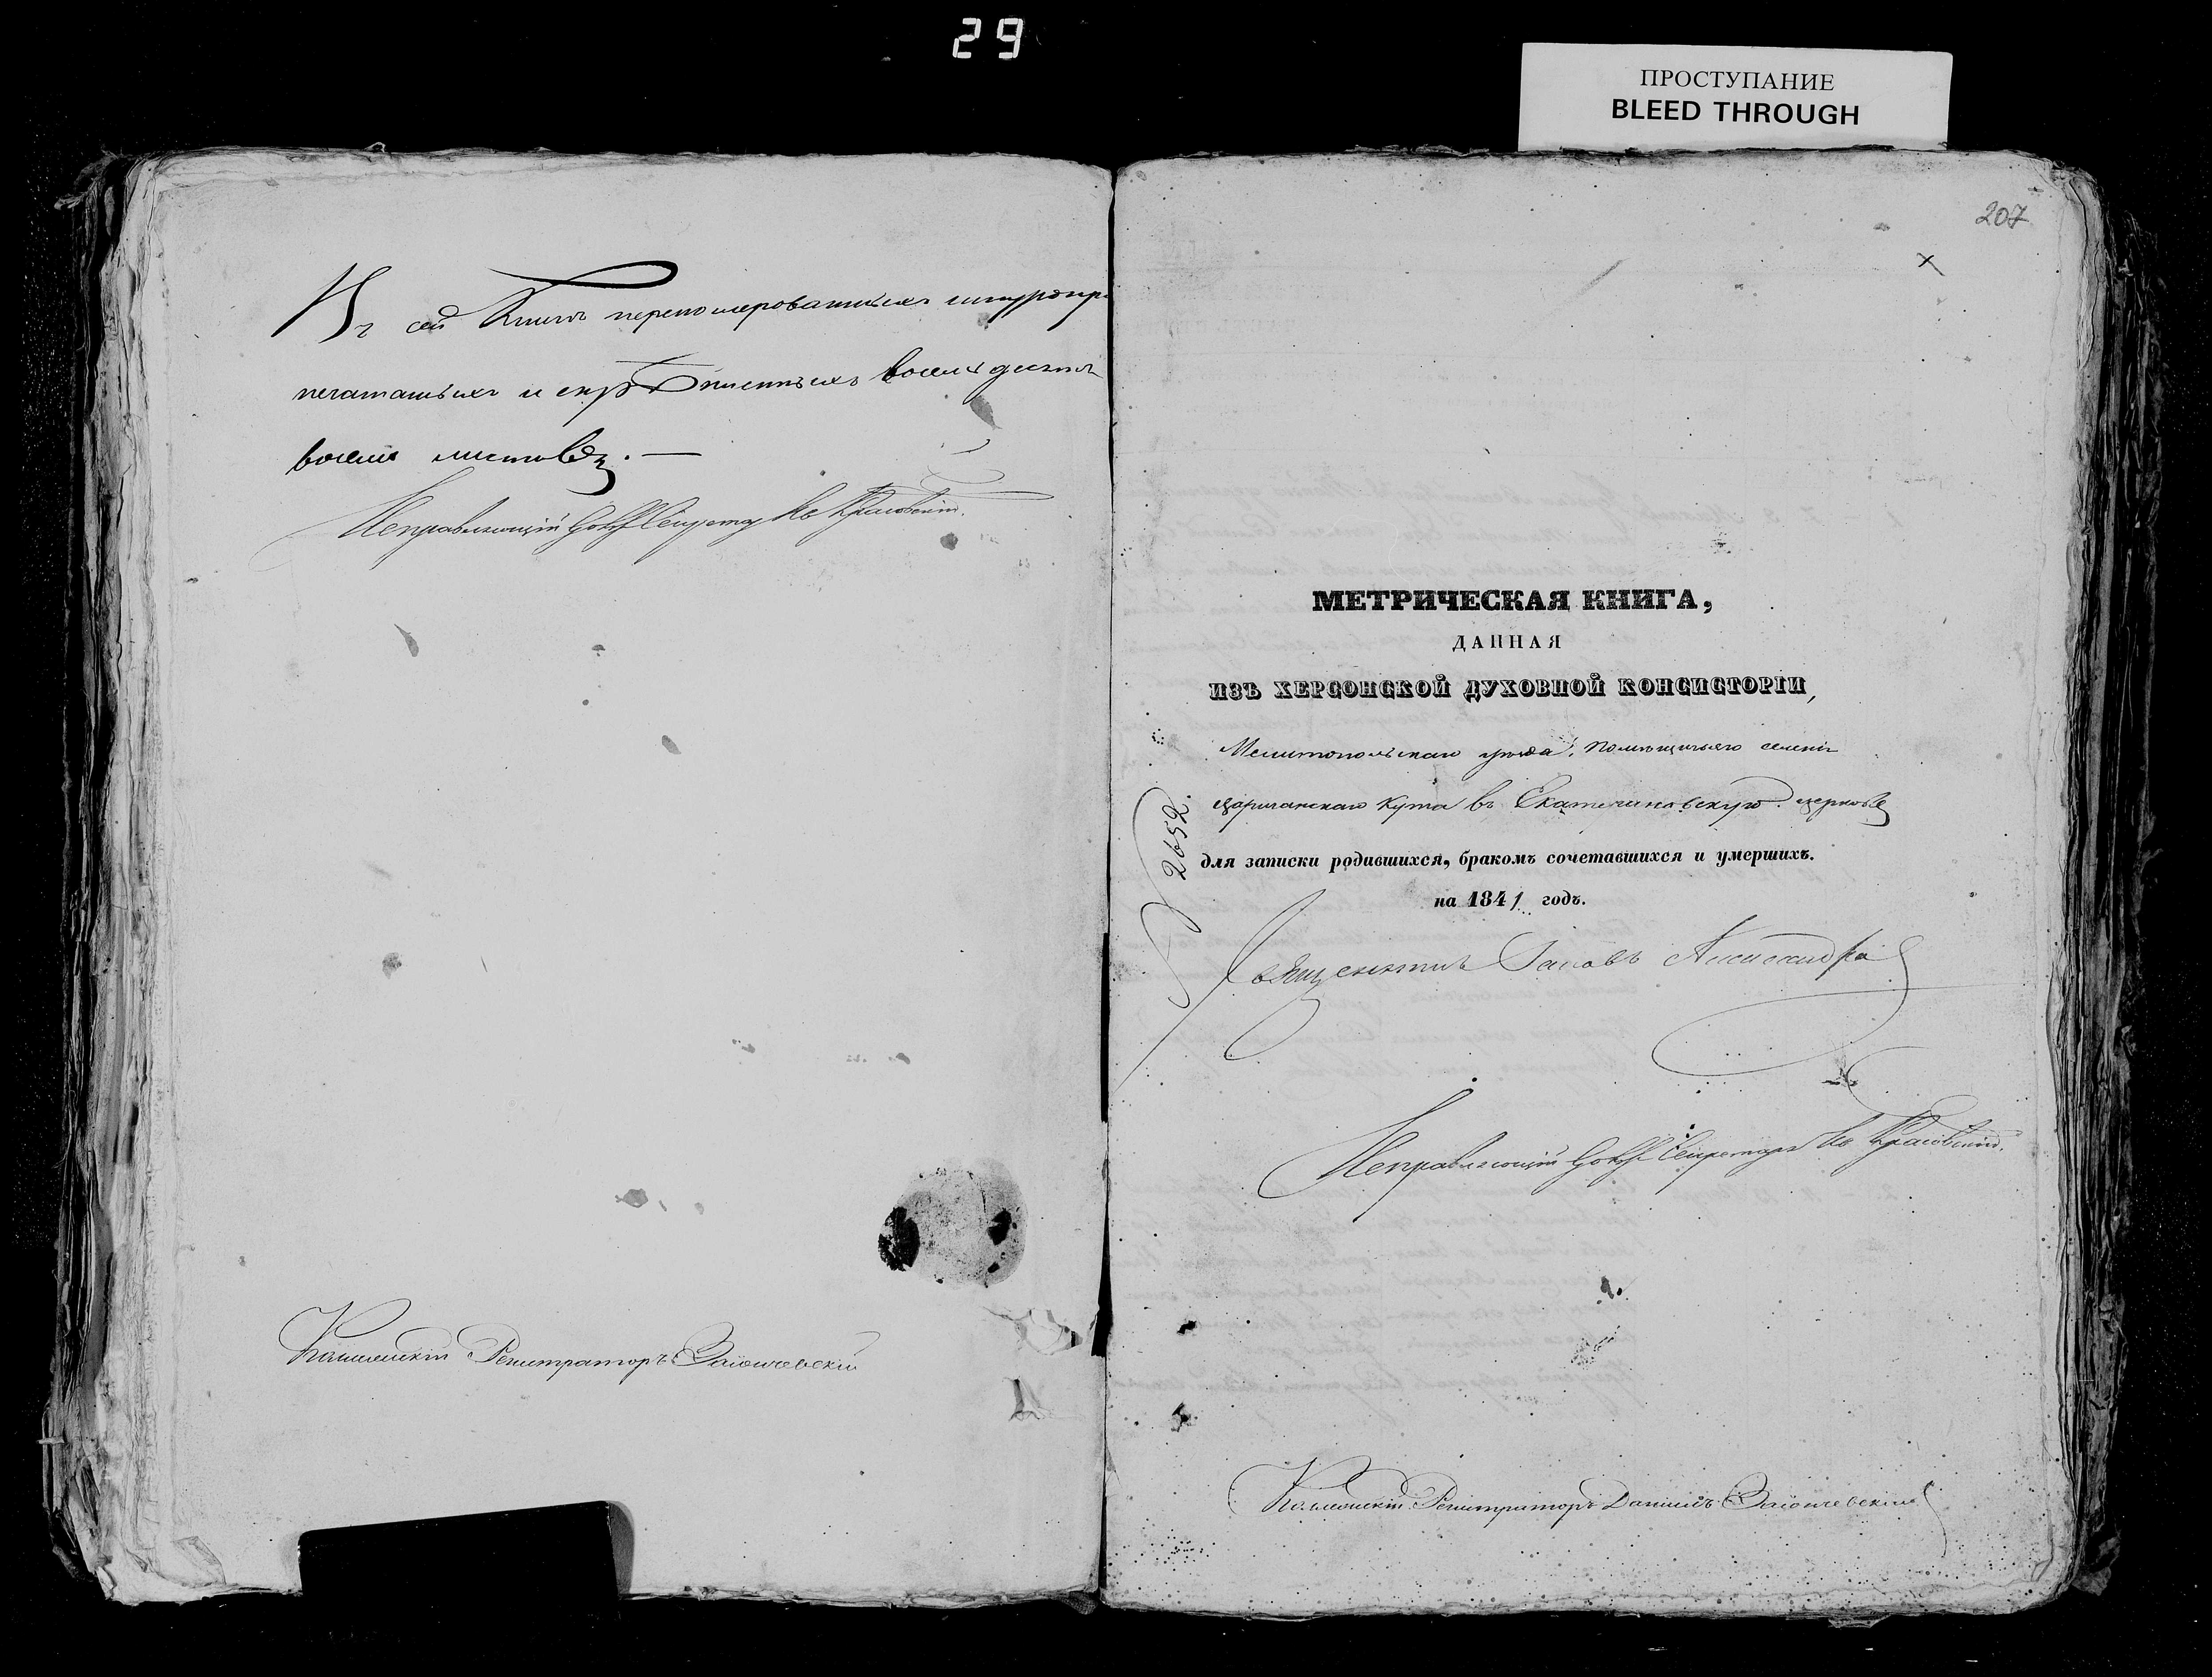 29
ПРОСТУПАНИЕ
BLEED THROUGH
Въ сей Книгѣ перенумерованныхъ шнуропро
печатанныхъ и скрѣпленныхъ восемьдесятъ
восемь листовъ. —
Исправляющій Секретар
Коллежскій Регистраторъ
207
МЕТРИЧЕСКАЯ КНИГА,
ДАННАЯ
ИЗЪ ХЕРСОНСКОЙ ДУХОВНОЙ КОНСИСТОРІИ,
Мелитопольскаго уѣзда, помѣщичьяго селенія
Царичанскаго Кута въ Екатериновскую церковь
2652.
для записки родившихся, бракомъ сочетавшихся и умершихъ.
на 1841 годъ.
Исправляющій Секретарь
Коллежскій Регистраторъ Даніилъ